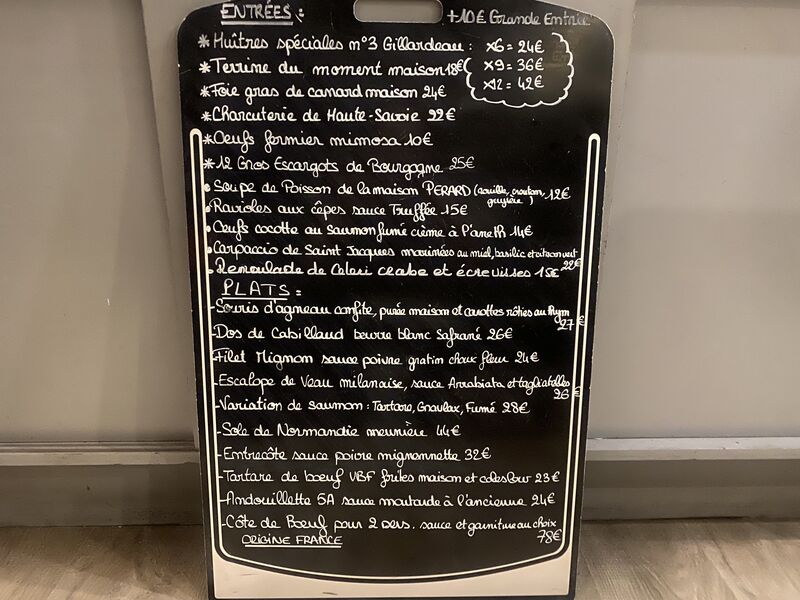 ENTRÉES :
+10€ Grande Entrée
* Huîtres spéciales n°3 Gillardeau : x6 = 24€
x9 = 36€
x12 = 42€
* Terrine du moment maison 18€
* Foie gras de canard maison 24€
* Charcuterie de Haute-Savoie 22€
* Oeufs fermier mimosa 10€
* 12 Gros Escargots de Bourgogne 25€
• Soupe de Poisson de la maison PERARD (rouille, crouton, gruyère) 12€
• Ravioles aux cêpes sauce Truffée 15€
• Oeufs cocotte au saumon fumé crème à l'aneth 14€
• Carpaccio de Saint Jacques marinées au miel, basilic et citron vert 22€
• Remoulade de Celeri crabe et écrevisses 15€
PLATS :
- Souris d'agneau confite, purée maison et carottes rôties au thym 27€
- Dos de Cabillaud beurre blanc Safrané 26€
- Filet Mignon sauce poivre gratin choux fleur 24€
- Escalope de Veau milanaise, sauce Arrabiata et tagliatelles 26€
- Variation de saumon : Tartare, Gravlax, Fumé 28€
- Sole de Normandie meunière 44€
- Entrecôte sauce poivre mignonnette 32€
- Tartare de boeuf VBF frites maison et coleslow 23€
- Andouillette 5A sauce moutarde à l'ancienne 24€
- Côte de Boeuf pour 2 pers. sauce et garniture au choix 78€
ORIGINE FRANCE